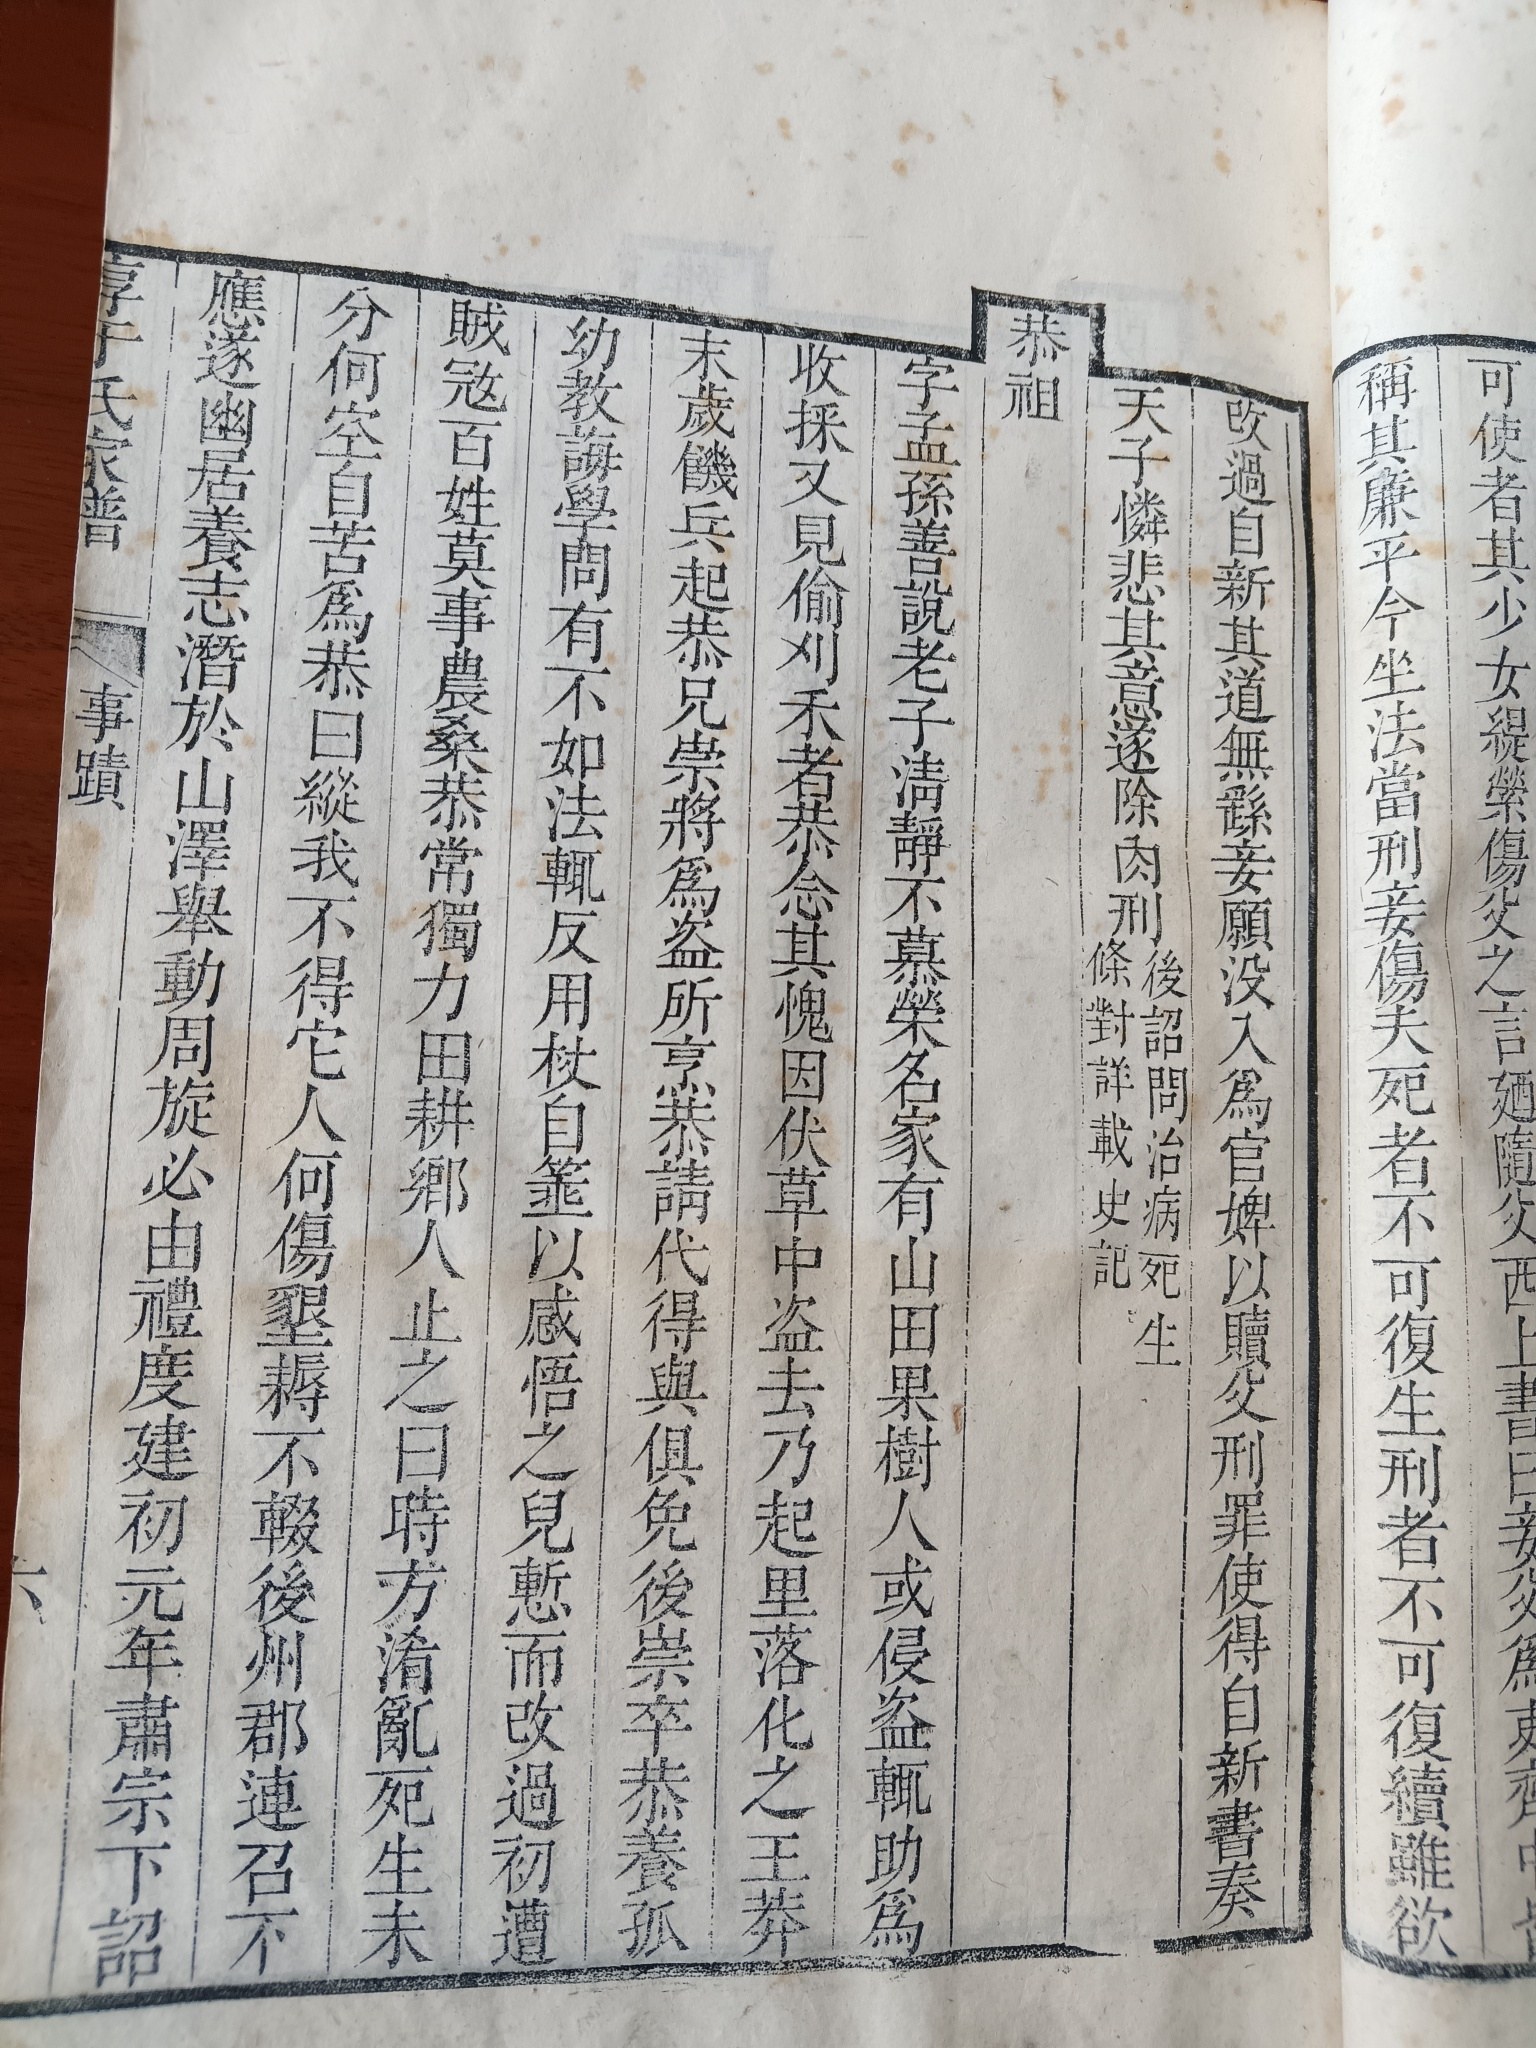 可使者其少女緹縈傷父之言廼隨父西上書曰妾父爲吏齊中皆
稱其廉平今坐法當刑妾傷夫死者不可復生刑者不可復續雖欲
改過自新其道無繇妾願没入爲官婢以贖父刑罪使得自新書奏
天子憐悲其意遂除肉刑後詔問治病死生
條對詳載史記
恭祖
字孟孫善說老子淸靜不慕榮名家有山田果樹人或侵盜輒助爲
收採又見偷刈禾者恭念其愧因伏草中盜去乃起里落化之王莽
末歲饑兵起恭兄崇將爲盜所烹恭請代得與俱免後崇卒恭養孤
幼教誨學問有不如法輒反用杖自箠以感悟之兒慙而改過初遭
賊寇百姓莫事農桑恭常獨力田耕鄉人止之曰時方淆亂死生未
分何空自苦爲恭曰縱我不得它人何傷墾耨不輟後州郡連召不
應遂幽居養志潛於山澤舉動周旋必由禮度建初元年肅宗下詔
淳于氏家譜
事蹟
六